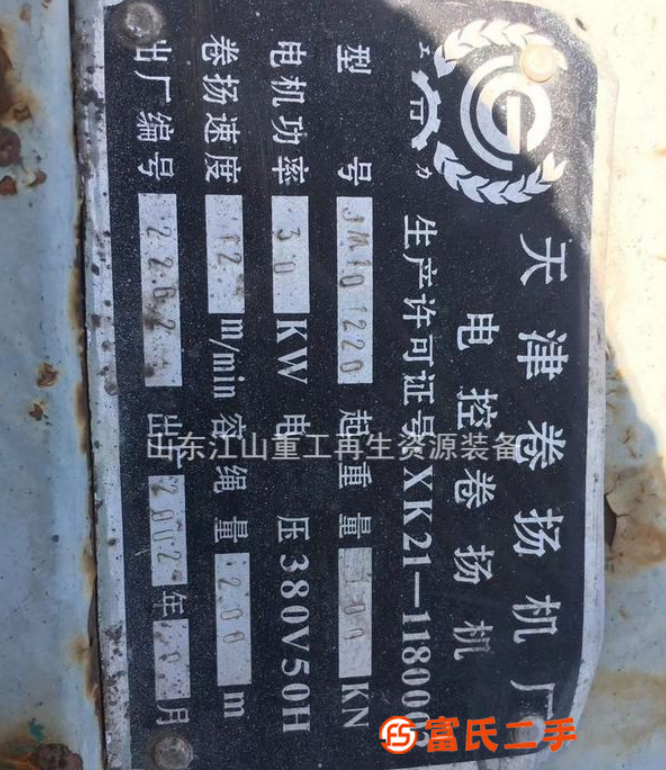 工力
天津卷扬机厂
电控卷扬机
生产许可证号XK21—118000
型号 JM10 1220 起重量 100 KN
电机功率 30 KW 电压380V50H
卷扬速度 12 m/min 容绳量 200 m
出厂编号 2262 出厂 2002年 月
山东江山重工再生资源装备
富氏二手